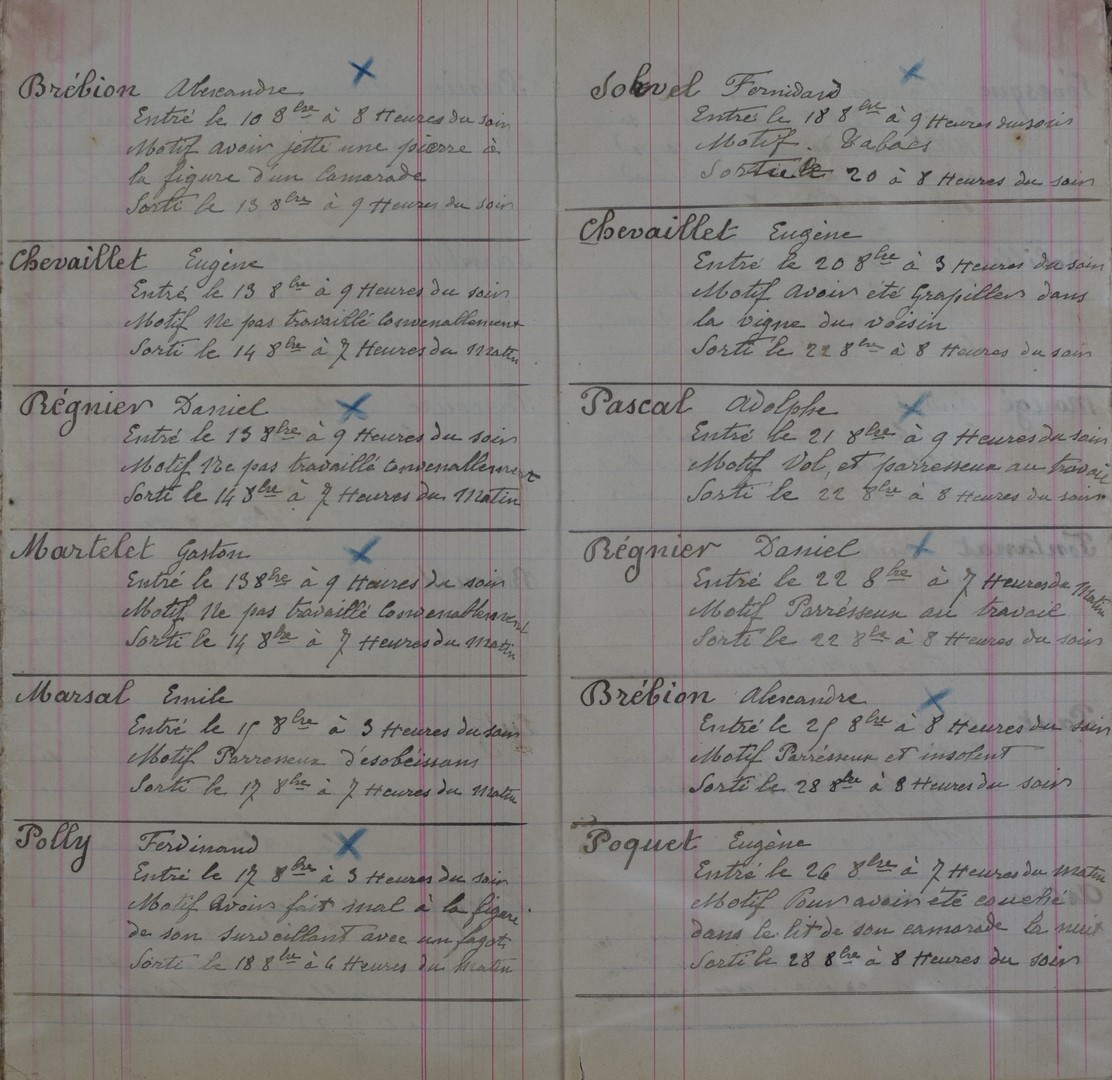 Brébion Alexandre
Entré le 10 8bre à 8 Heures du soir
Motif avoir jetté une pierre à
la figure d'un Camarade
Sorti le 13 8bre à 9 Heures du soir
Chevaillet Eugène
Entré le 13 8bre à 9 Heures du soir
Motif Ne pas travaillé Convenablement
Sorti le 14 8bre à 7 Heures du Matin
Régnier Daniel
Entré le 13 8bre à 9 Heures du soir
Motif Ne pas travaillé Convenablement
Sorti le 14 8bre à 7 Heures du Matin
Martelet Gaston
Entré le 13 8bre à 9 Heures du soir
Motif Ne pas travaillé Convenablement
Sorti le 14 8bre à 7 Heures du Matin
Marsal Emile
Entré le 15 8bre à 3 Heures du soir
Motif Parresseux d'ésobéissans
Sorti le 17 8bre à 7 Heures du Matin
Polly Ferdinand
Entré le 17 8bre à 3 Heures du soir
Motif Avoir fait mal à la figure
de son surveillant avec un fagot
Sorti le 18 8bre à 6 Heures du Matin
Entré le 18 8bre à 9 Heures du soir
Motif. Tabacs
Sortie le 20 à 8 Heures du soir
Chevaillet Eugène
Entré le 20 8bre à 3 Heures du soir
Motif Avoir été Grapiller dans
la vigne du voisin
Sorti le 22 8bre à 8 Heures du soir
Pascal Adolphe
Entré le 21 8bre à 9 Heures du soir
Motif Vol, et parresseux au travail
Sorti le 22 8bre à 8 Heures du soir
Régnier Daniel
Entré le 22 8bre à 7 Heures du Matin
Motif Parrésseux au travail
Sorti le 22 8bre à 8 Heures du soir
Brébion Alexandre
Entré le 25 8bre à 8 Heures du soir
Motif Parésseux et insolent
Sorti le 28 8bre à 8 Heures du soir
Poquet Eugène
Entré le 26 8bre à 7 Heures du Matin
Motif Pour avoir été couché
dans le lit de son camarade la nuit
Sorti le 28 8bre à 8 Heures du soir